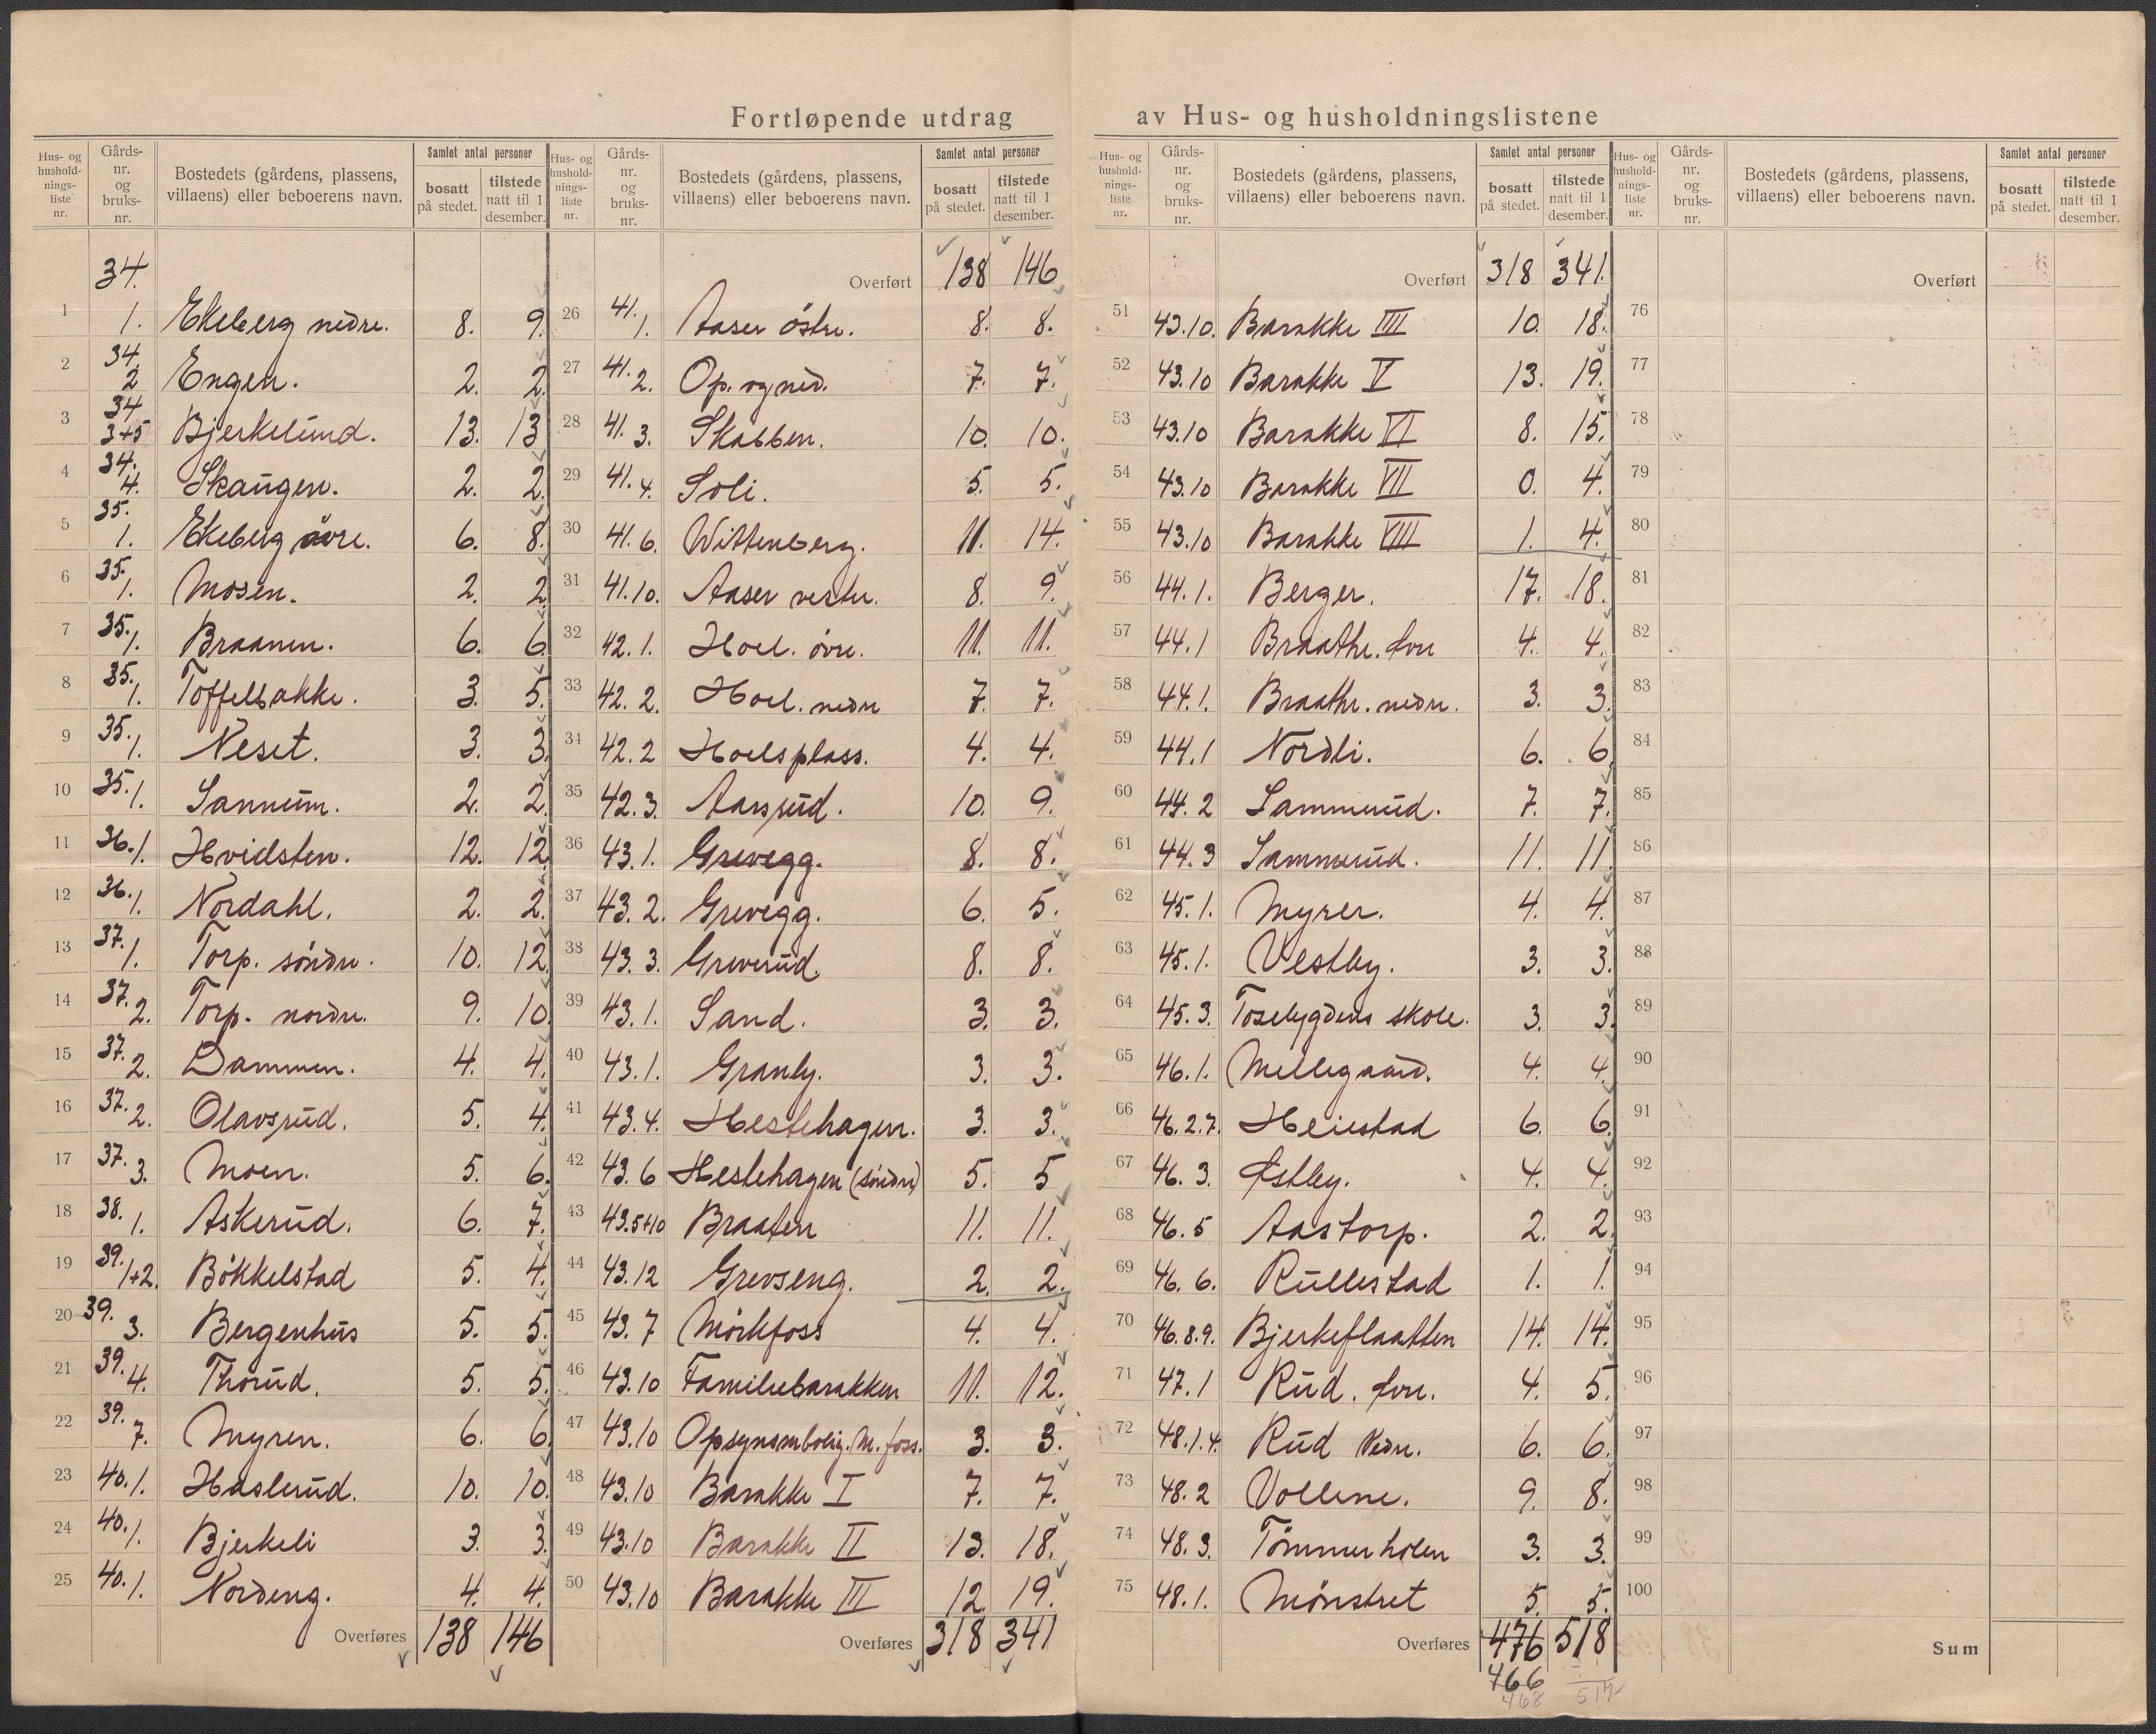 Fortløpende utdrag av Hus- og husholdningslistene
Hus- og husholdnings-liste nr. Gårds-nr. og bruks-nr. Bostedets (gårdens, plassens, villaens) eller beboerens navn. Samlet antal personer bosatt på stedet. tilstede natt til 1 desember.
1 34. 1. Ekeberg nedre. 8. 9.
2 34. 2 Engen. 2. 2.
3 34 3+5 Bjerkelund. 13. 13
4 34. 4. Skaugen. 2. 2.
5 35. 1. Ekeberg øvre. 6. 8.
6 35. 1. Mosen. 2. 2
7 35. 1. Braanen. 6. 6.
8 35. 1. Toffelbakke. 3. 5.
9 35. 1. Neset. 3. 3.
10 35. 1. Sannum. 2. 2.
11 36. 1. Hvidsten. 12. 12
12 36. 1. Nordahl. 2. 2.
13 37. 1. Torp. söndre. 10. 12.
14 37. 2. Torp. nordre. 9. 10.
15 37. 2. Dammen. 4. 4.
16 37. 2. Olavsrud. 5. 4.
17 37. 3. Moen. 5. 6.
18 38. 1. Askerud. 6. 7.
19 39. 1+2. Bökkelstad 5. 4.
20 39. 3. Bergenhus 5. 5.
21 39. 4. Thorud. 5. 5.
22 39. 7. Myren. 6. 6.
23 40. 1. Haslerud. 10. 10.
24 40. 1. Bjerkeli 3. 3.
25 40. 1. Nordeng. 4. 4.
Overføres 138 146
Hus- og husholdnings-liste nr. Gårds-nr. og bruks-nr. Bostedets (gårdens, plassens, villaens) eller beboerens navn. Samlet antal personer bosatt på stedet. tilstede natt til 1 desember.
Overført 138 146
26 41. 1. Aaser östre. 8. 8.
27 41. 2. Op. og ned. 7. 7.
28 41. 3. Skabben. 10. 10.
29 41. 4. Soli. 5. 5.
30 41. 6. Wittenberg. 11. 14.
31 41. 10. Aaser vestre. 8. 9.
32 42. 1. Hoel. övre. 11. 11.
33 42. 2. Hoel. nedre 7. 7.
34 42. 2 Hoelsplass. 4. 4.
35 42. 3. Aasrud. 10. 9.
36 43. 1. Grevegg. 8. 8.
37 43. 2. Grevegg. 6. 5.
38 43. 3. Greverud. 8. 8.
39 43. 1. Sand. 3. 3.
40 43. 1. Granly. 3. 3.
41 43. 4. Hestehagen. 3. 3.
42 43. 6 Hestehagen (söndre) 5. 5
43 43. 5+10 Braaten 11. 11.
44 43. 12 Grevseng. 2. 2.
45 43. 7 Mörkfoss 4. 4.
46 43. 10 Familiebarakken 11. 12.
47 43. 10 Opsynsmbolig. M. foss. 3. 3.
48 43. 10 Barakke I 7. 7.
49 43. 10 Barakke II 13. 18.
50 43. 10 Barakke III 12. 19.
Overføres 318 341
Hus- og husholdnings-liste nr. Gårds-nr. og bruks-nr. Bostedets (gårdens, plassens, villaens) eller beboerens navn. Samlet antal personer bosatt på stedet. tilstede natt til 1 desember.
Overført 318 341.
51 43. 10. Barakke IIII 10. 18.
52 43. 10 Barakke V 13. 19.
53 43. 10 Barakke VI 8. 15.
54 43. 10 Barakke VII 0. 4.
55 43. 10 Barakke VIII 1. 4.
56 44. 1. Berger. 17. 18.
57 44. 1 Braathe. övre 4. 4.
58 44. 1. Braathe. nedre. 3. 3.
59 44. 1 Nordli. 6. 6
60 44. 2 Sammerud. 7. 7.
61 44. 3 Sammerud. 11. 11
62 45. 1. Myrer. 4. 4.
63 45. 1. Vestby. 3. 3.
64 45. 3. Tosebygdens skole. 3. 3.
65 46. 1. Mellegaard. 4. 4.
66 46. 2. 7. Heiestad 6. 6.
67 46. 3. Østby. 4. 4.
68 46. 5 Aastorp. 2. 2.
69 46. 6. Rullestad 1. 1.
70 46. 8. 9. Bjerkeflaatten 14. 14.
71 47. 1 Rud. övre. 4. 5.
72 48. 1. 4. Rud Nedre. 6. 6.
73 48. 2 Vollene. 9. 8.
74 48. 3. Tömmerholen 3. 3.
75 48. 1. Mönstret 5. 5.
Overføres 476 518
466
468 517
Hus- og husholdnings-liste nr. Gårds-nr. og bruks-nr. Bostedets (gårdens, plassens, villaens) eller beboerens navn. Samlet antal personer bosatt på stedet. tilstede natt til 1 desember.
Overført
76
77
78
79
80
81
82
83
84
85
86
87
88
89
90
91
92
93
94
95
96
97
98
99
100
Sum